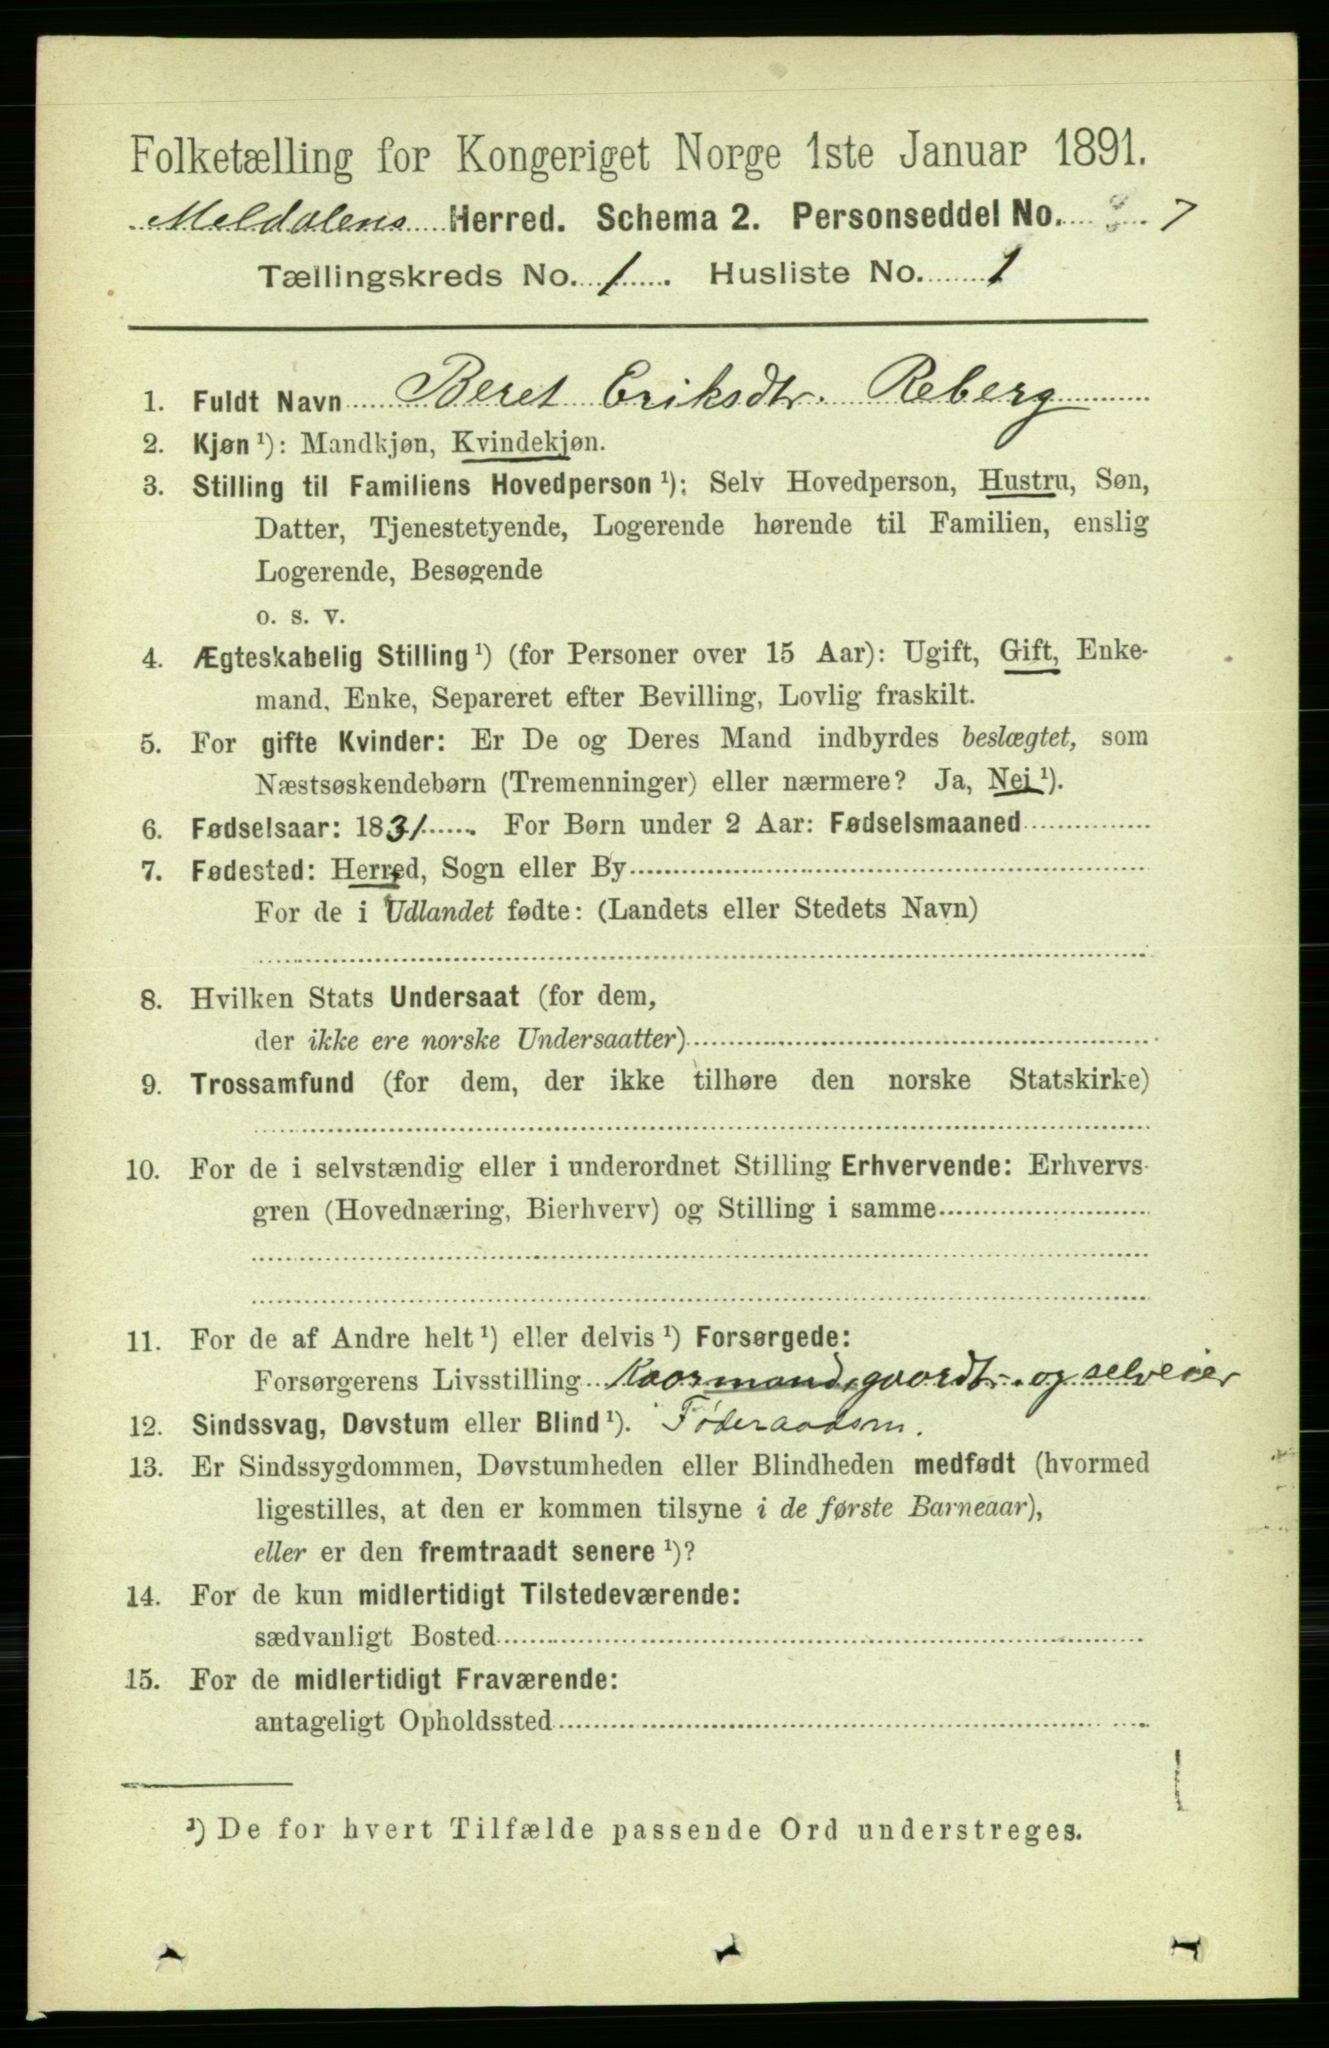 Folketælling for Kongeriget Norge 1ste Januar 1891.
Meldalens Herred. Schema 2. Personseddel No. 7
Tællingskreds No. 1. Husliste No. 1
1. Fuldt Navn Beret Eriksdtr. Reberg
2. Kjøn ¹): Mandkjøn, Kvindekjøn.
3. Stilling til Familiens Hovedperson ¹): Selv Hovedperson, Hustru, Søn,
Datter, Tjenestetyende, Logerende hørende til Familien, enslig
Logerende, Besøgende
o. s. v.
4. Ægteskabelig Stilling ¹) (for Personer over 15 Aar): Ugift, Gift, Enke-
mand, Enke, Separeret efter Bevilling, Lovlig fraskilt.
5. For gifte Kvinder: Er De og Deres Mand indbyrdes beslægtet, som
Næstsøskendebørn (Tremenninger) eller nærmere? Ja, Nei ¹).
6. Fødselsaar: 1831. For Børn under 2 Aar: Fødselsmaaned
7. Fødested: Herred, Sogn eller By
For de i Udlandet fødte: (Landets eller Stedets Navn)
8. Hvilken Stats Undersaat (for dem,
der ikke ere norske Undersaatter)
9. Trossamfund (for dem, der ikke tilhøre den norske Statskirke)
10. For de i selvstændig eller i underordnet Stilling Erhvervende: Erhvervs-
gren (Hovednæring, Bierhverv) og Stilling i samme
11. For de af Andre helt ¹) eller delvis ¹) Forsørgede:
Forsørgerens Livsstilling gaardbr. og selveier
12. Sindssvag, Døvstum eller Blind ¹). Føderaadsm.
13. Er Sindssygdommen, Døvstumheden eller Blindheden medfødt (hvormed
ligestilles, at den er kommen tilsyne i de første Barneaar),
eller er den fremtraadt senere ¹)?
14. For de kun midlertidigt Tilstedeværende:
sædvanligt Bosted
15. For de midlertidigt Fraværende:
antageligt Opholdssted
¹) De for hvert Tilfælde passende Ord understreges.